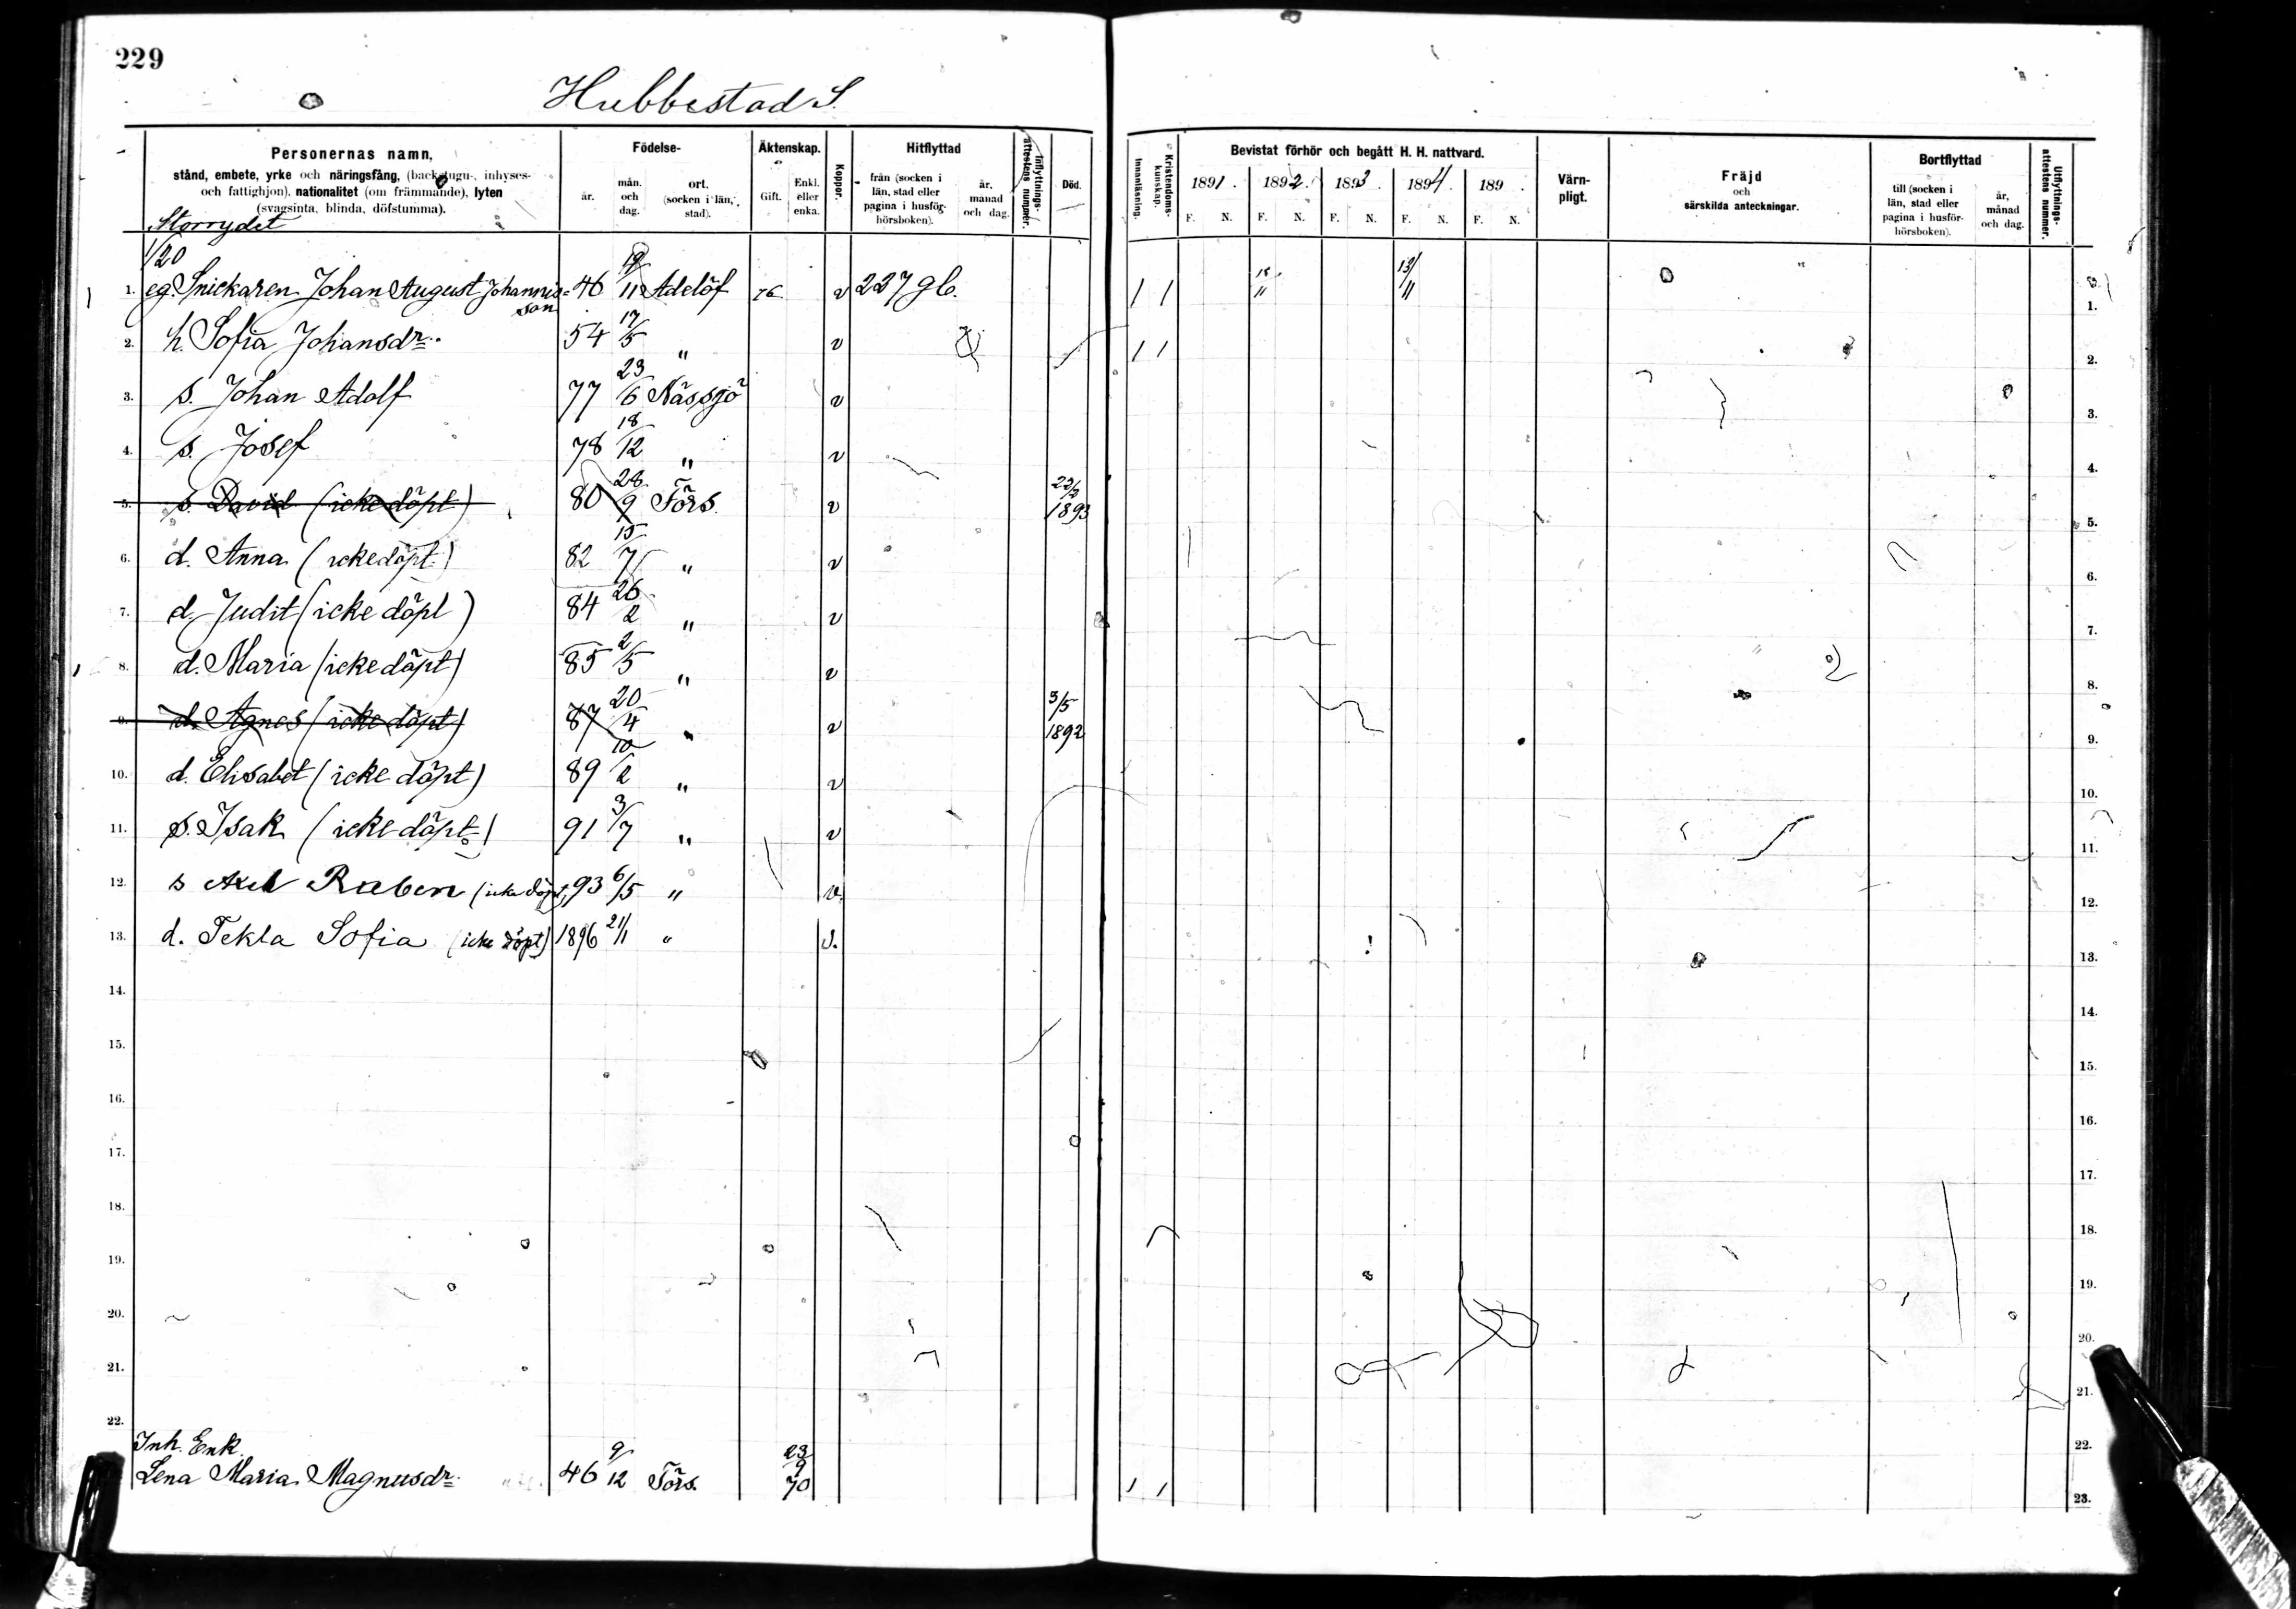 229
Hubbestad S.
Personernas namn,
stånd, embete, yrke och näringsfång, (backstugu-, inhyses-
och fattighjon), nationalitet (om främmande), lyten
(svagsinta, blinda, döfstumma).
Födelse-
år.
mån. och dag.
ort, (socken i län, stad).
Äktenskap.
Gift.
Enkl. eller enka.
Koppor.
Hitflyttad
från (socken i län, stad eller pagina i husförhörsboken).
år, månad och dag.
Inflyttnings-attestens nummer.
Död.
Innanläsning.
Kristendoms-kunskap.
Bevistat förhör och begått H. H. nattvard.
1891. 1892. 1893. 1894. 189 .
F. N. F. N. F. N. F. N. F. N.
Värn-pligt.
Fräjd
och
särskilda anteckningar.
Bortflyttad
till (socken i län, stad eller pagina i husförhörsboken).
år, månad och dag.
Utflyttnings-attestens nummer.
Storrydet
1/20
1. eg. Snickaren Johan August Johannis= 46 19/11 Adelöf 76 v 237 gb. 1 1 13/11 1.
son
2. h. Sofia Johansdr. 54 17/5 " v 1 1 2.
3. s. Johan Adolf 77 23/6 Nässjö v 3.
4. s. Josef 78 18/12 " v 4.
5. s. David (icke döpt) 80 28/9 Förs. v 22/2 1893 5.
6. d. Anna (icke döpt) 82 15/7 " v 6.
7. d. Judit (icke döpt) 84 26/2 " v 7.
8. d. Maria (icke döpt) 85 2/5 " v 8.
9. d. Agnes (icke döpt) 87 20/4 " v 3/5 1892 9.
10. d. Elisabet (icke döpt) 89 10/2 " v 10.
11. s. Isak (icke döpt) 91 3/7 " v 11.
12. s Axel Ruben (icke döpt) 93 6/5 " v. 12.
13. d. Tekla Sofia (icke döpt) 1896 21/1 " v. 13.
14. 14.
15. 15.
16. 16.
17. 17.
18. 18.
19. 19.
20. 20.
21. 21.
22. 22.
Inh. Enk.
Lena Maria Magnusdr. 46 9/12 Förs. 23/9 70 1 1 23.